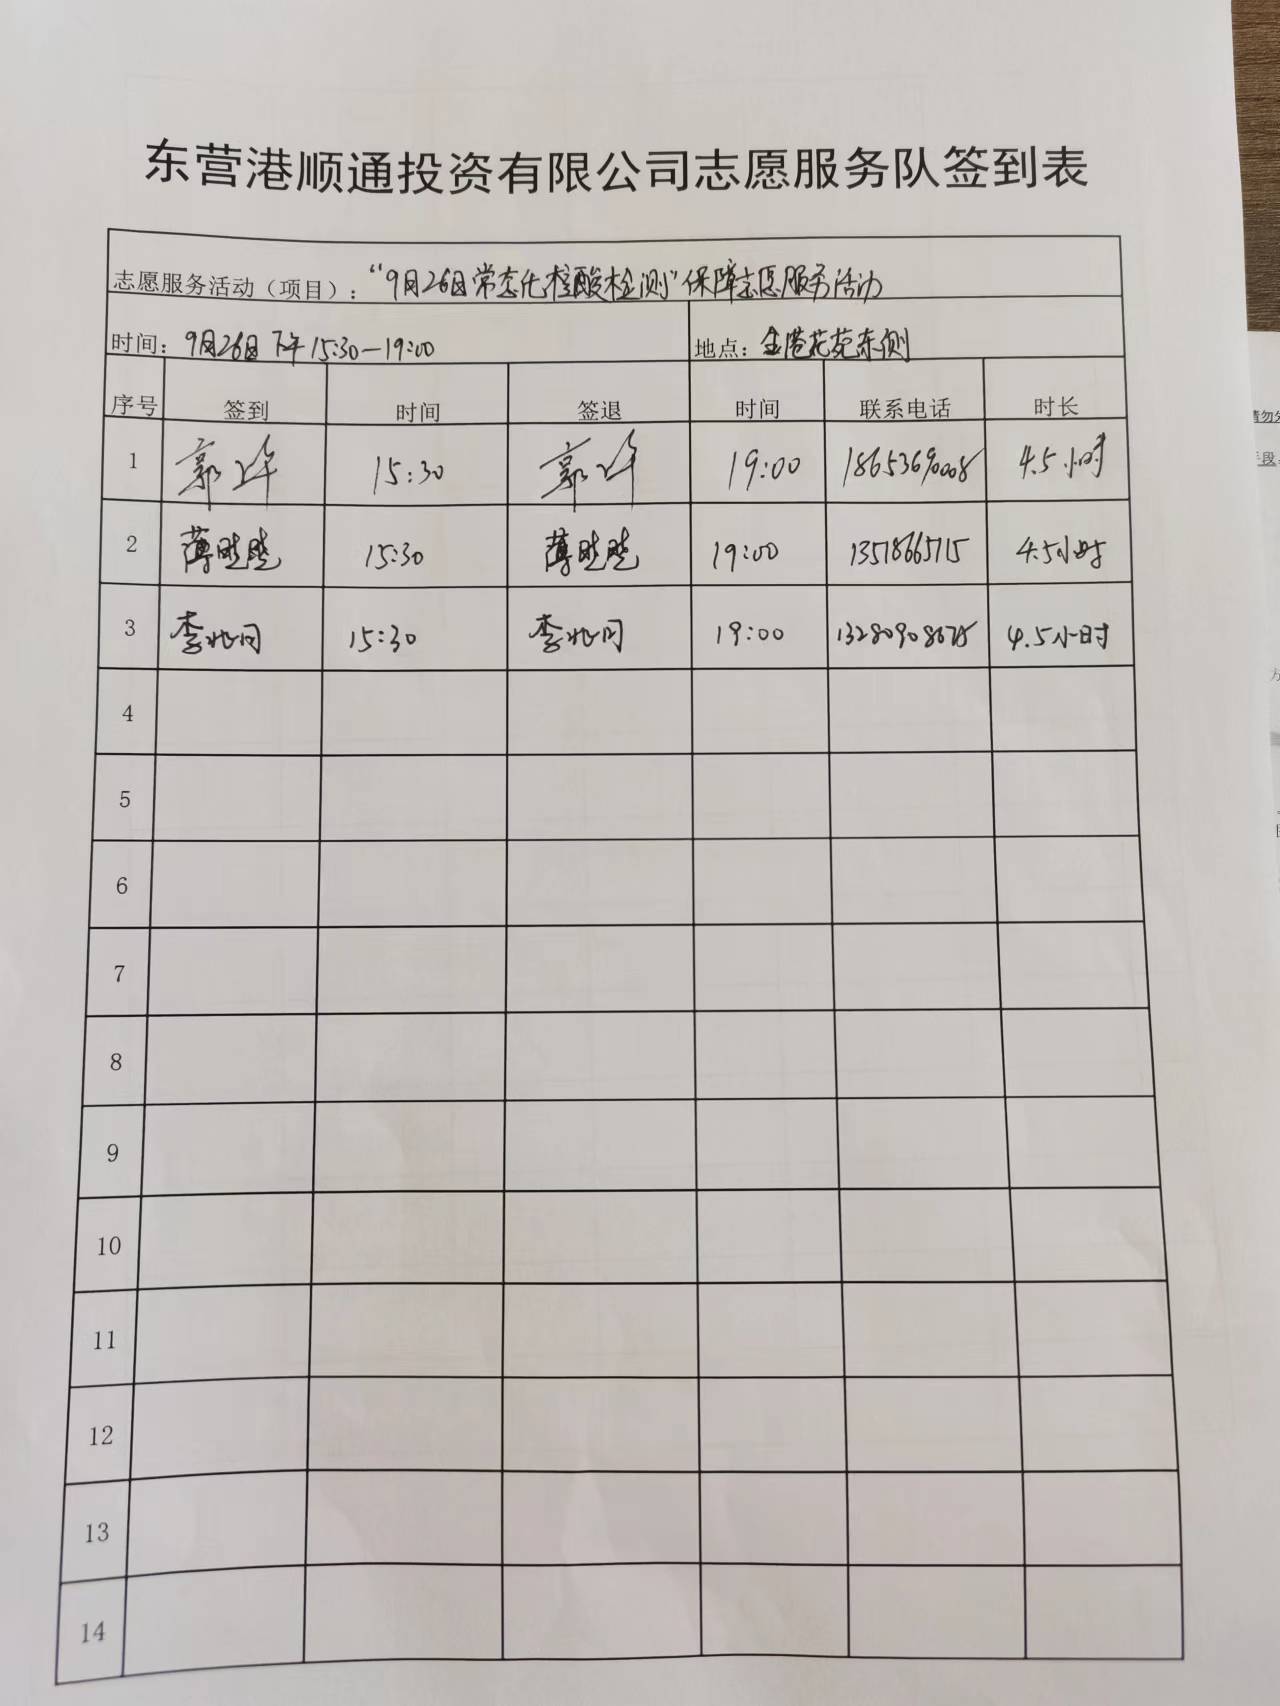 东营港顺通投资有限公司志愿服务队签到表
志愿服务活动（项目）：“9月26日常态化核酸检测”保障志愿服务活动
时间：9月26日下午15:30—19:00 地点：金港花苑东侧
序号 签到 时间 签退 时间 联系电话 时长
1 郭 15:30 郭 19:00 18653690008 4.5小时
2 薄 15:30 薄 19:00 13518665715 4.5小时
3 李兆同 15:30 李兆同 19:00 4.5小时
4
5
6
7
8
9
10
11
12
13
14